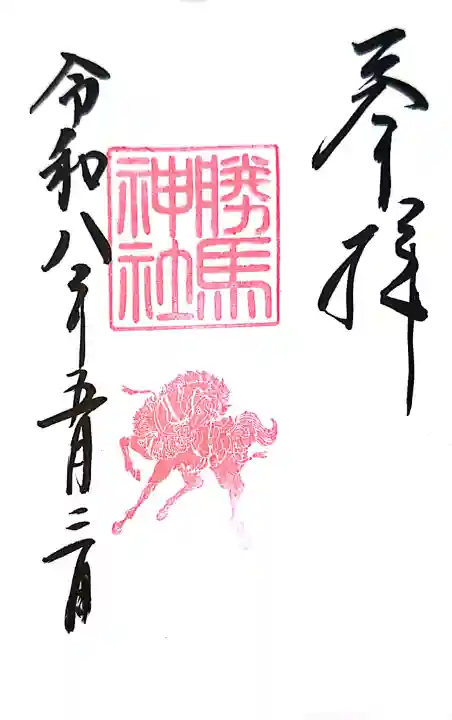 奉拝
勝馬
神社
令和八年五月二日